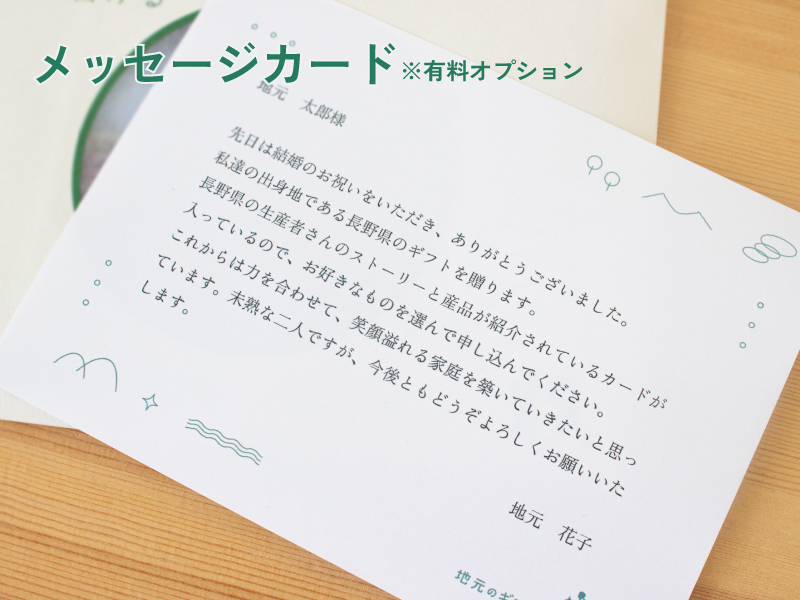 メッセージカード※有料オプション
地元　太郎様
先日は結婚のお祝いをいただき、ありがとうございました。
私達の出身地である長野県のギフトを贈ります。
長野県の生産者さんのストーリーと産品が紹介されているカードが
入っているので、お好きなものを選んで申し込んでください。
これからは力を合わせて、笑顔溢れる家庭を築いていきたいと思っ
ています。未熟な二人ですが、今後ともどうぞよろしくお願いいた
します。
地元　花子
地元のギ